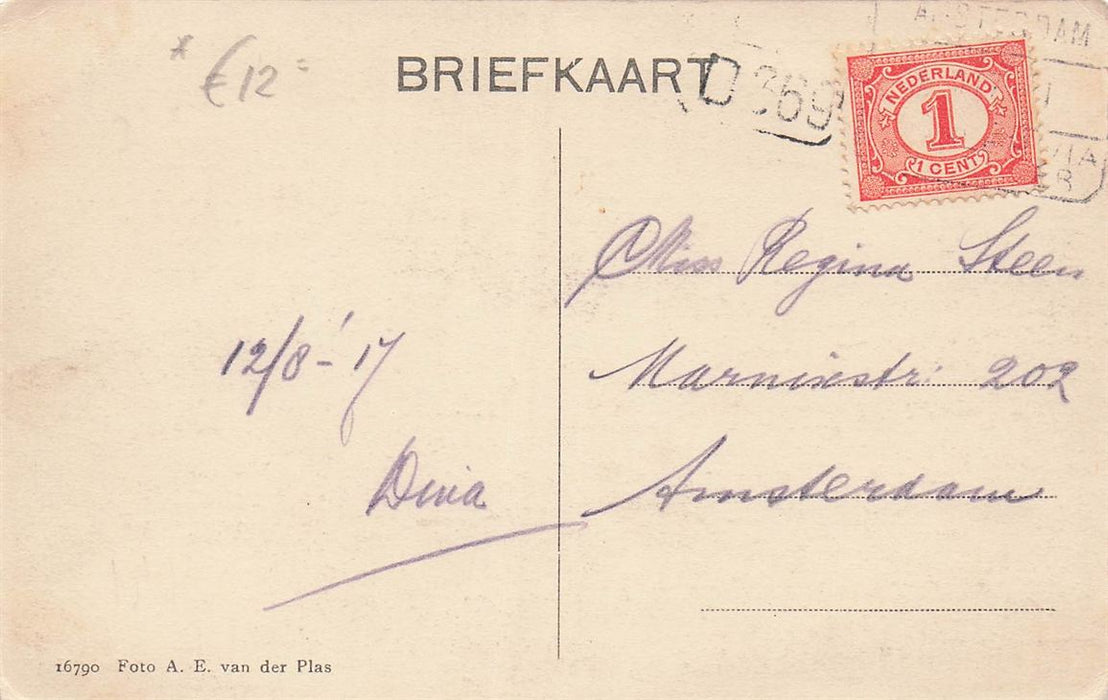 * € 12 =
BRIEFKAART
D369
AMSTERDAM
VIA
NEDERLAND
1
1 CENT
Miss Regina Steen
Marnixstr: 202
Amsterdam
12/8-'17
Dina
16790 Foto A. E. van der Plas